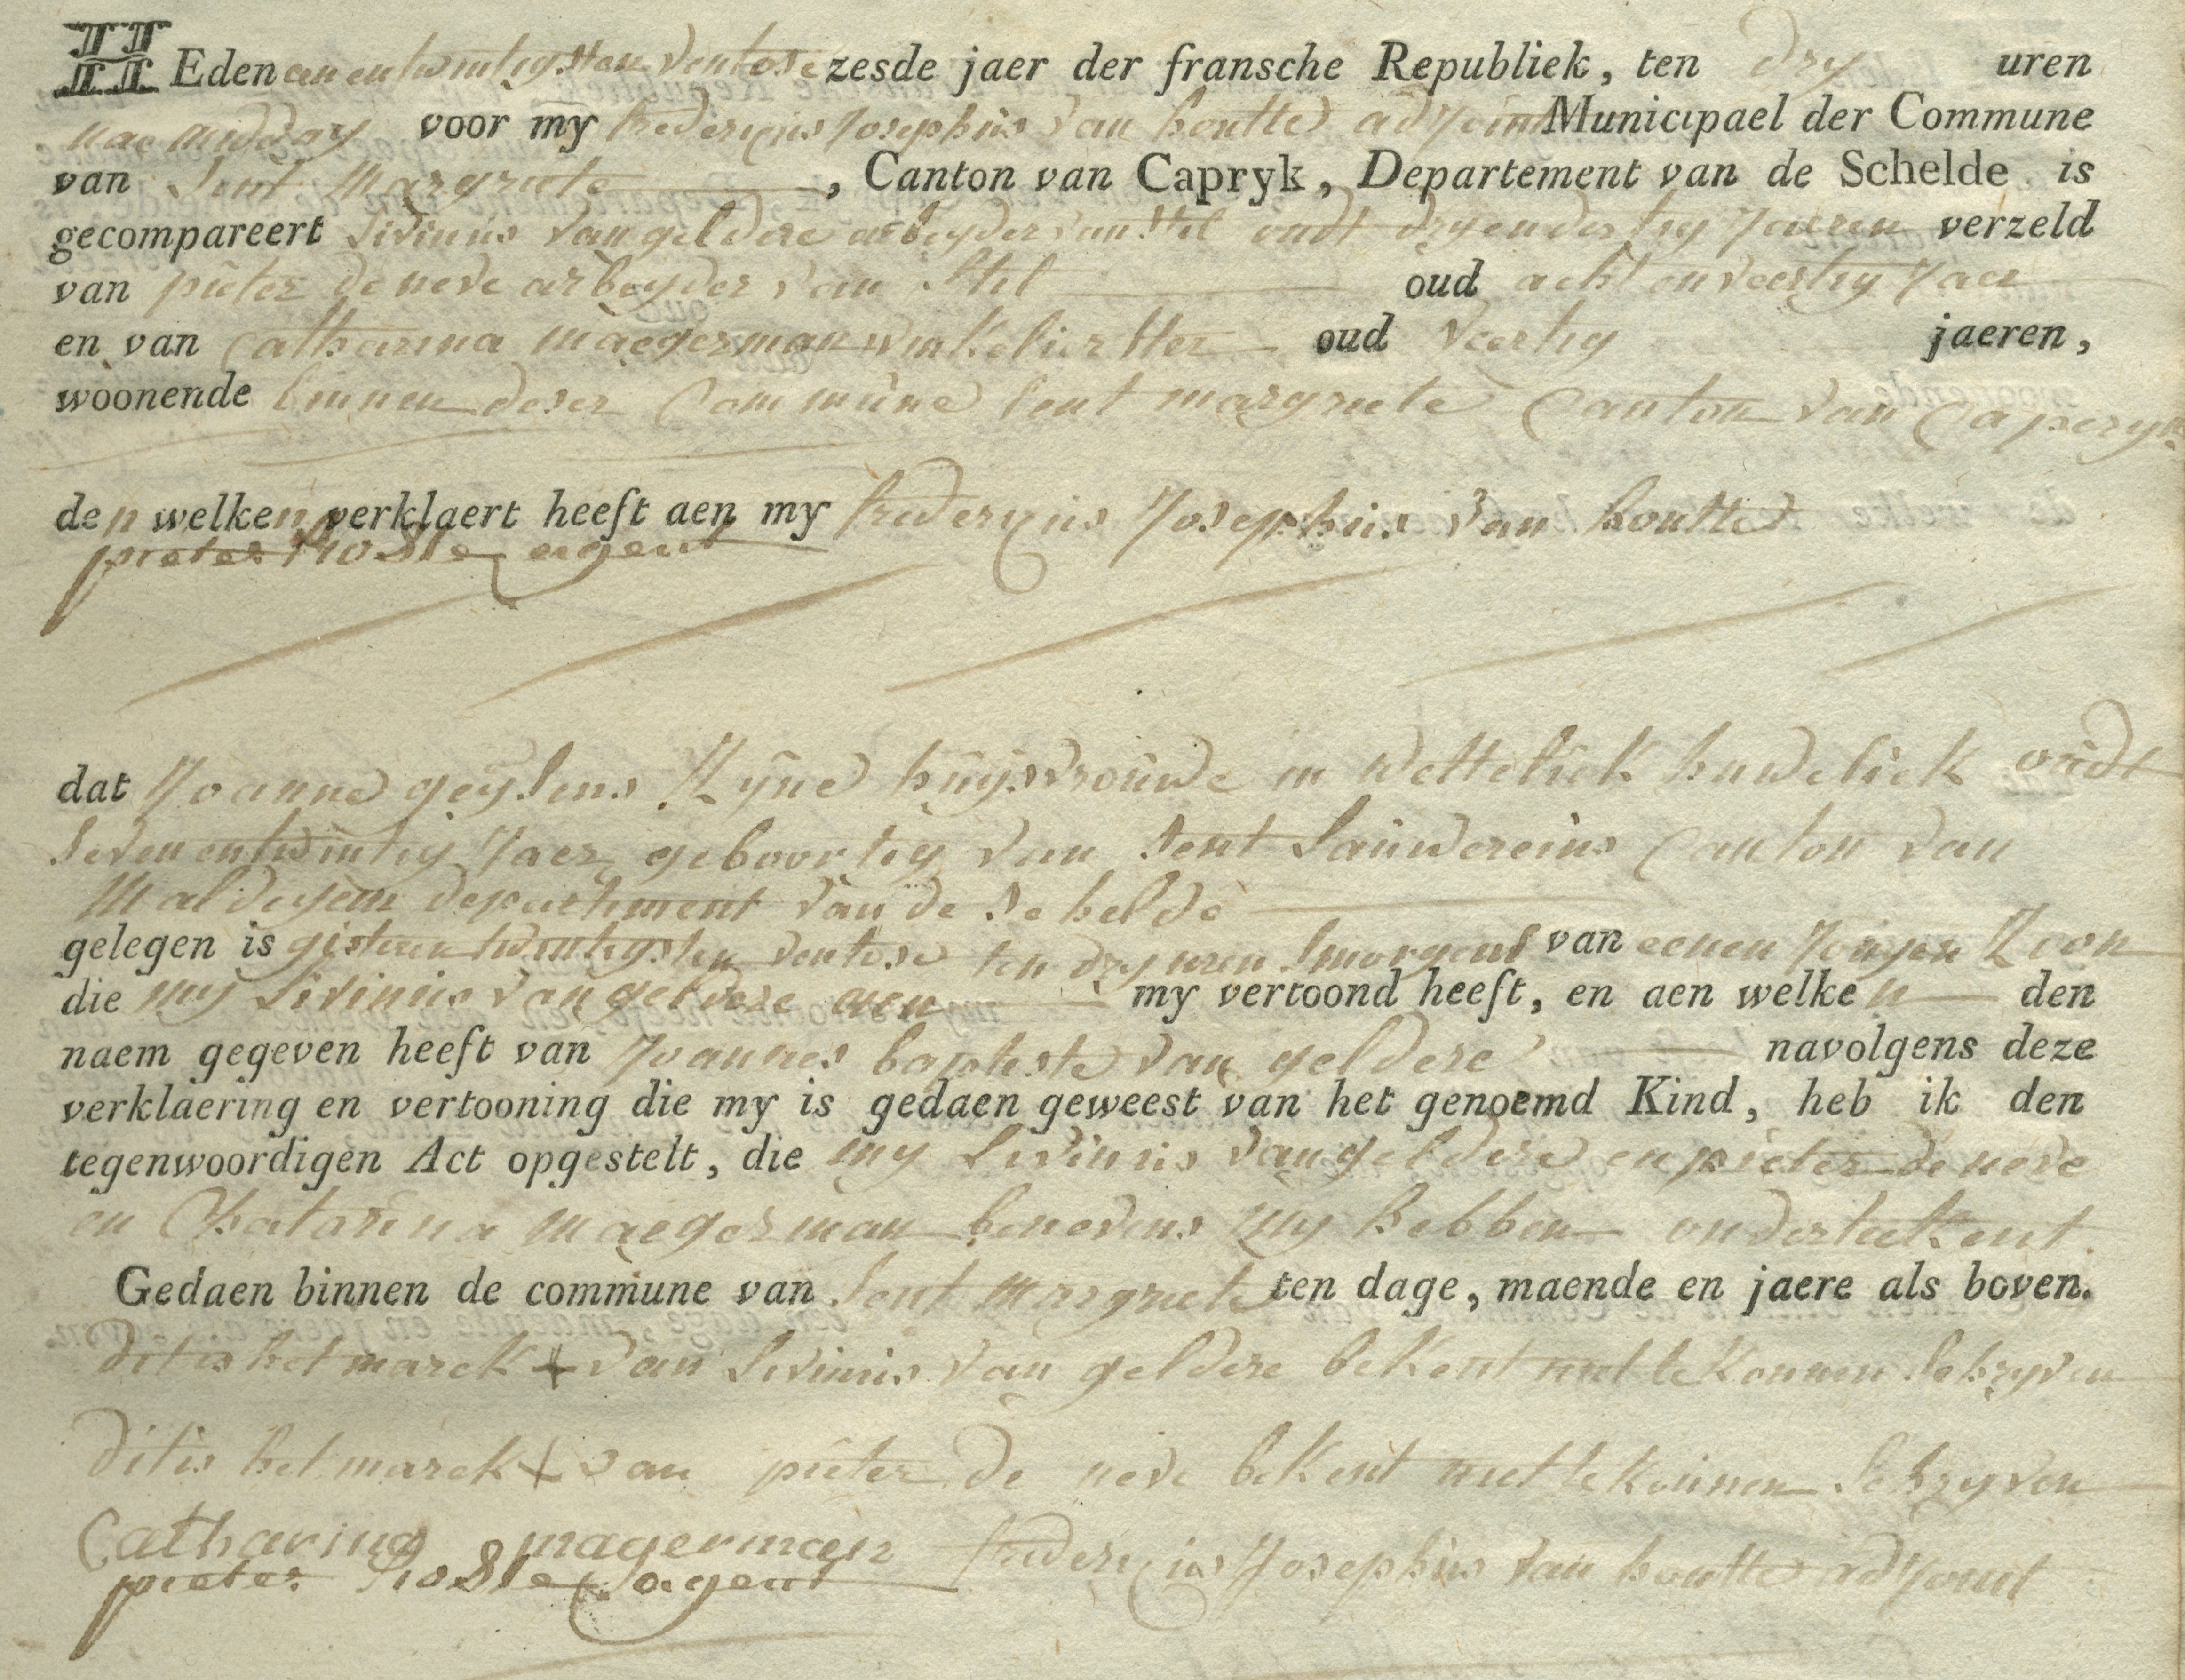 HEden een entwintigsten ventose zesde jaer der fransche Republiek, ten dry uren
nae midday voor my fredericus Josephus van houtte adjoint Municipael der Commune
van sent Margriete, Canton van Capryk, Departement van de Schelde is
gecompareert Livinus van geldere arbeyder van stel oudt dryendertig Jaeren verzeld
van pieter de neve arbeyder van stel oud acht en veertig Jaer
en van Catharina maegerman winkelierster oud veertig jaeren,
woonende binnen deser Commune sent margriete Canton van Capryk
den welken verklaert heeft aen my fredericus Josephus van houtte
pieter agent
dat Joanne geysens Zyne huysvrouwe in Wetteliek huweliek oudt
seven entwintig Jaer geboortig van sent Lauwereins Canton van
Maldegem department van de schelde
gelegen is gisteren twintigsten ventose ten dry uren smorgens van eenen Jongen Zoon
die my Livinus van geldere aen my vertoond heeft, en aen welken den
naem gegeven heeft van Joannes baptiste van geldere navolgens deze
verklaering en vertooning die my is gedaen geweest van het genoemd Kind, heb ik den
tegenwoordigen Act opgestelt, die my Livinus van geldere en pieter de neve
en Chatarina maegerman benevens my hebben onderteekent.
Gedaen binnen de commune van sent Margriete ten dage, maende en jaere als boven.
dit is het marck + van Livinus van geldere bekent niet te konnen schryven
dit is het marck + van pieter de neve bekent niet te konnen schryven
Catharina magerman fredericus Josephus van houtte adjoint
pieter agent